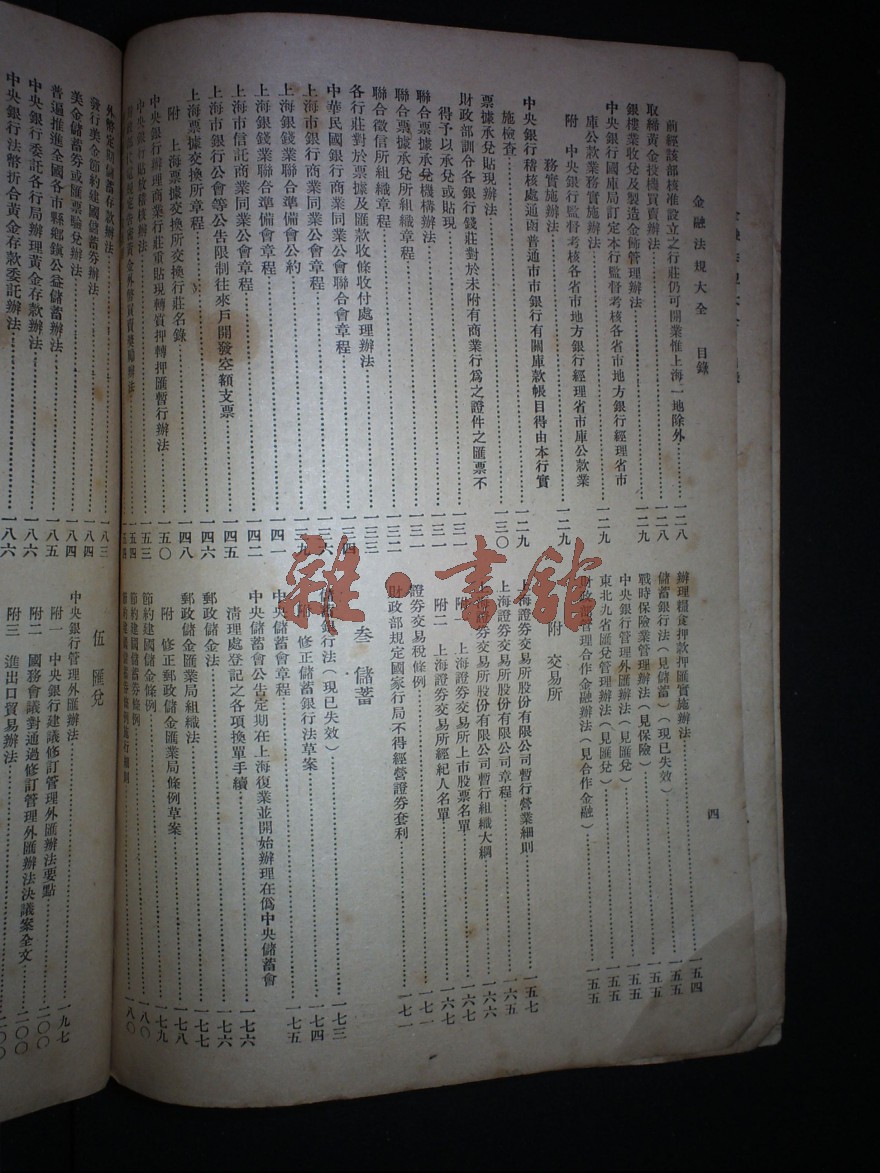 金融法規大全 目錄
四
前經該部核准設立之行莊仍可開業惟上海一地除外……一二八
取締黃金投機買賣辦法……一二八
銀樓業收兌及製造金飾管理辦法……一二九
中央銀行國庫局訂定本行監督考核各省市地方銀行經理省市
庫公款業務實施辦法……一二九
附 中央銀行監督考核各省市地方銀行經理省市庫公款業
務實施辦法……一二九
中央銀行稽核處通函普通市市銀行有關庫款帳目得由本行實
施檢查……一二九
票據承兌貼現辦法……一三〇
財政部訓令各銀行錢莊對於未附有商業行為之證件之匯票不
得予以承兌或貼現……一三一
聯合票據承兌機構辦法……一三一
聯合票據承兌所組織章程……一三一
聯合徵信所組織章程……一三二
各行莊對於票據及匯款收條收付處理辦法……一三三
中華民國銀行商業同業公會聯合會章程……一三四
上海市銀行商業同業公會章程……一三六
上海銀錢業聯合準備會公約……一三九
上海銀錢業聯合準備會章程……一四一
上海市信託商業同業公會章程……一四二
上海市銀行公會等公告限制往來戶開發空額支票……一四五
上海票據交換所章程……一四六
附 上海票據交換所交換行莊名錄……一四八
中央銀行辦理商業行莊重貼現轉質押轉押匯暫行辦法……一五〇
中央銀行貼放稽核辦法……一五三
辦理糧食押款押匯實施辦法……一五四
儲蓄銀行法(見儲蓄)(現已失效)……一五五
戰時保險業管理辦法(見保險)……一五五
中央銀行管理外匯辦法(見匯兌)……一五五
東北九省匯兌管理辦法(見匯兌)……一五五
財政部管理合作金融辦法(見合作金融)……一五五
附 交易所
上海證券交易所股份有限公司暫行營業細則……一五七
上海證券交易所股份有限公司章程……一六五
上海證券交易所股份有限公司暫行組織大綱……一六六
附一 上海證券交易所上市股票名單……一六七
附二 上海證券交易所經紀人名單……一六七
證券交易稅條例……一七一
財政部規定國家行局不得經營證券套利……一七一
叁 儲蓄
儲蓄銀行法(現已失效)……一七三
附 修正儲蓄銀行法草案……一七四
中央儲蓄會章程……一七五
中央儲蓄會公告定期在上海復業並開始辦理在偽中央儲蓄會
清理處登記之各項換單手續……一七六
郵政儲金法……一七六
郵政儲金匯業局組織法……一七七
附 修正郵政儲金匯業局條例草案……一七八
節約建國儲金條例……一七九
節約建國儲蓄券條例……一八〇
一八〇
外幣定期儲蓄存款辦法……一八三
發行美金節約建國儲蓄券辦法……一八四
美金儲蓄券或匯票驗兌辦法……一八四
普遍推進全國各市縣鄉鎮公益儲蓄辦法……一八五
中央銀行委託各行局辦理黃金存款辦法……一八六
中央銀行法幣折合黃金存款委託辦法……一八六
伍 匯兌
中央銀行管理外匯辦法……一九七
附一 中央銀行建議修訂管理外匯辦法要點……二〇〇
附二 國務會議對通過修訂管理外匯辦法決議案全文……二〇〇
附三 進出口貿易辦法……二〇〇
雜·書館